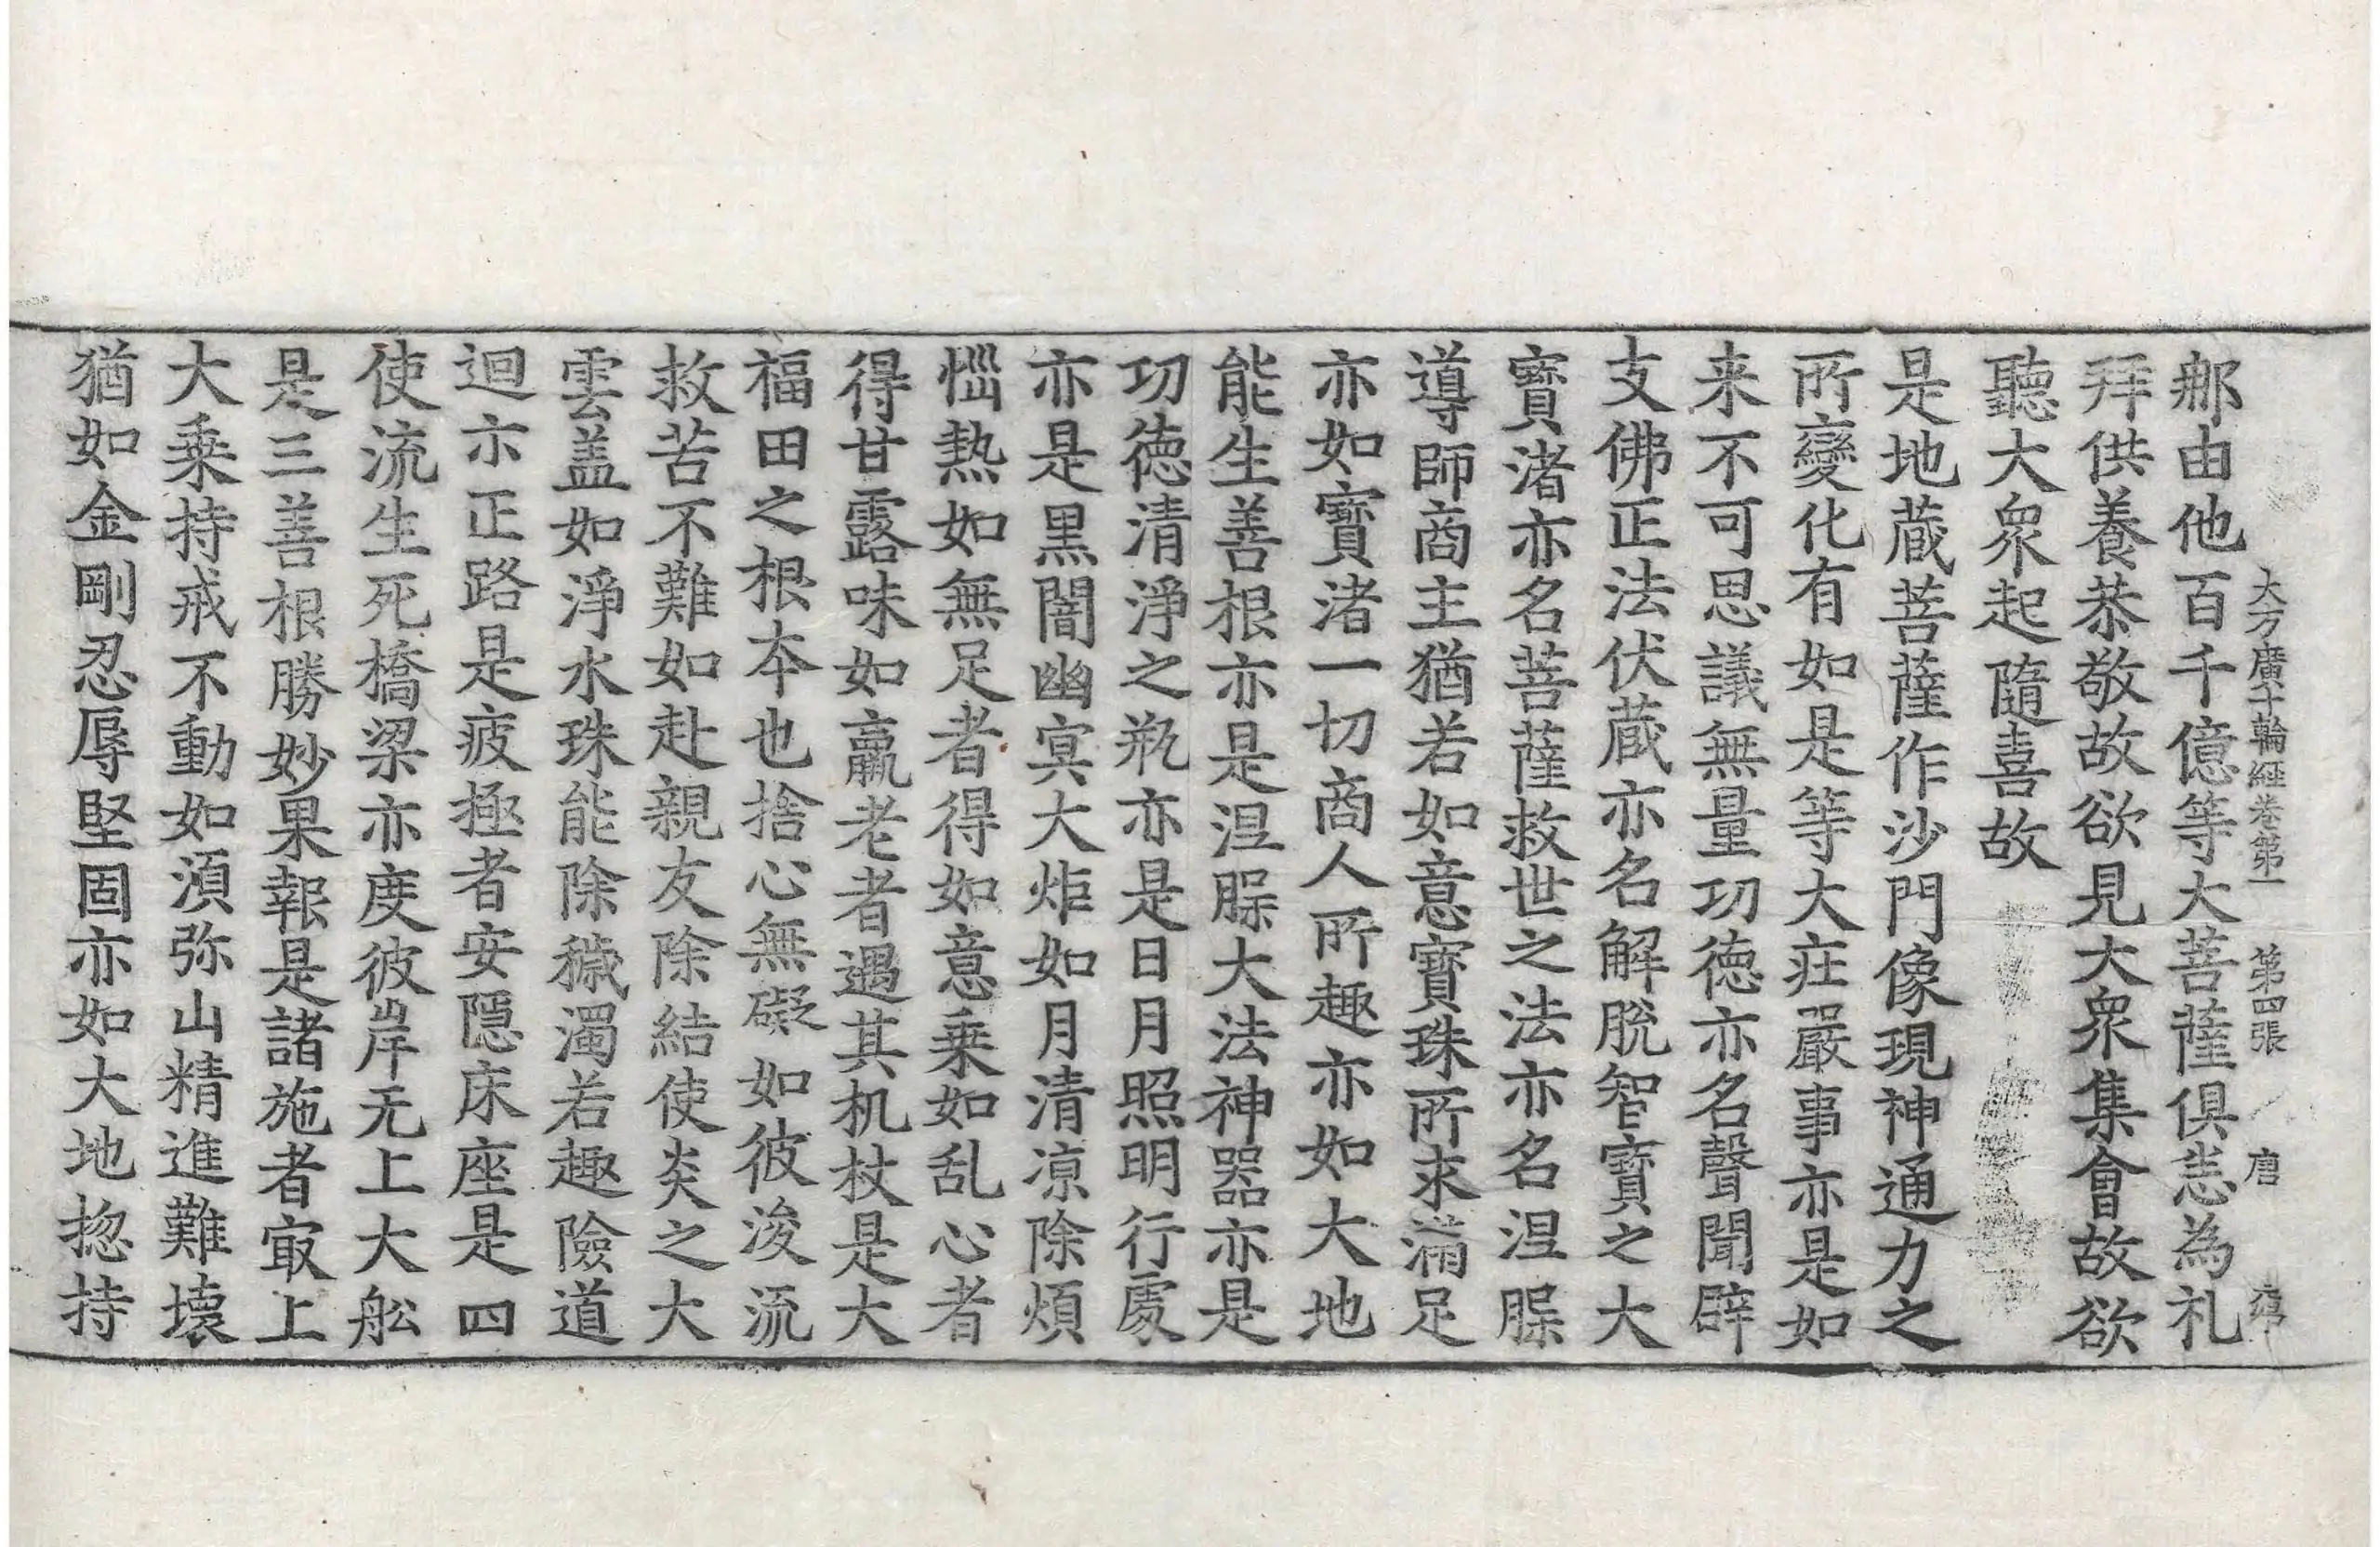 大方廣十輪經卷第一 第四張 唐
郍由他百千億等大菩薩俱恙為礼
拜供養恭敬故欲見大衆集會故欲
聽大衆起隨喜故
是地蔵菩薩作沙門像現神通力之
所變化有如是等大莊嚴事亦是如
来不可思議無量功徳亦名聲聞辟
支佛正法伏蔵亦名解脫智寶之大
寶渚亦名菩薩救世之法亦名涅㲎
導師商主猶若如意寶珠所求滿足
亦如寶渚一切商人所趣亦如大地
能生善根亦是涅㲎大法神器亦是
功徳清淨之瓶亦是日月照明行處
亦是黒闇幽㝠大炬如月清凉除煩
惱熱如無足者得如意乗如乱心者
得甘露味如羸老者遇其机杖是大
福田之根夲也捨心無礙如彼浚流
救苦不難如赴親友除結使炎之大
雲盖如淨水珠能除穢濁若趣險道
迴示正路是疲極者安隱床座是四
使流生死橋梁亦度彼岸无上大舩
是三善根勝妙果報是諸施者㝡上
大乗持戒不動如湏弥山精進難壊
猶如金剛忍辱堅固亦如大地揔持